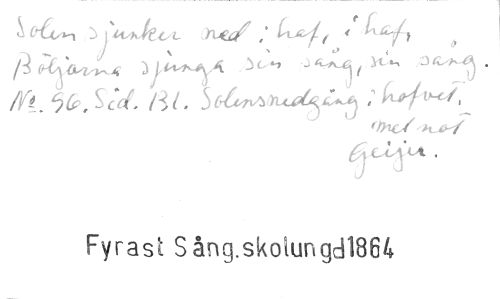 Solen sjunker ned i haf, i haf,
Böljorna sjunga sin sång, sin sång.
No. 96. Sid. 131. Solensnedgång i hafvet.
mel not
Geijer.
Fyrast Sång.skolungd1864